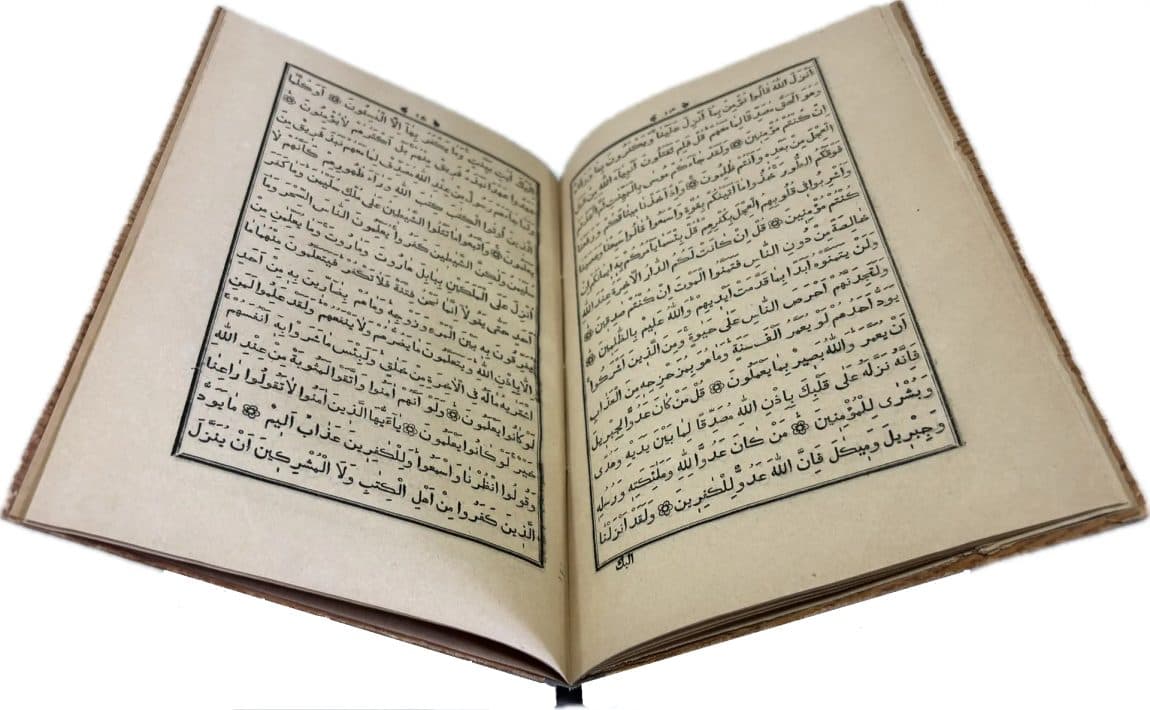 ١٣
اَنْزَلَ اللّٰهُ قَالُوا نُؤْمِنُ بِمَا اُنْزِلَ عَلَيْنَا وَيَكْفُرُونَ بِمَا وَرَاءَهُ
وَهُوَ الْحَقُّ مُصَدِّقًا لِمَا مَعَهُمْ قُلْ فَلِمَ تَقْتُلُونَ اَنْبِيَاءَ اللّٰهِ مِنْ قَبْلُ
اِنْ كُنْتُمْ مُؤْمِنِينَ وَلَقَدْ جَاءَكُمْ مُوسٰى بِالْبَيِّنٰتِ ثُمَّ اتَّخَذْتُمُ
الْعِجْلَ مِنْ بَعْدِهِ وَاَنْتُمْ ظٰلِمُونَ وَاِذْ اَخَذْنَا مِيثَاقَكُمْ وَرَفَعْنَا
فَوْقَكُمُ الطُّورَ خُذُوا مَا اٰتَيْنٰكُمْ بِقُوَّةٍ وَاسْمَعُوا قَالُوا سَمِعْنَا وَعَصَيْنَا
وَاُشْرِبُوا فِي قُلُوبِهِمُ الْعِجْلَ بِكُفْرِهِمْ قُلْ بِئْسَمَا يَاْمُرُكُمْ بِهِ اِيمَانُكُمْ اِنْ
كُنْتُمْ مُؤْمِنِينَ قُلْ اِنْ كَانَتْ لَكُمُ الدَّارُ الْاٰخِرَةُ عِنْدَ اللّٰهِ
خَالِصَةً مِنْ دُونِ النَّاسِ فَتَمَنَّوُا الْمَوْتَ اِنْ كُنْتُمْ صٰدِقِينَ
وَلَنْ يَتَمَنَّوْهُ اَبَدًا بِمَا قَدَّمَتْ اَيْدِيهِمْ وَاللّٰهُ عَلِيمٌ بِالظّٰلِمِينَ
وَلَتَجِدَنَّهُمْ اَحْرَصَ النَّاسِ عَلٰى حَيٰوةٍ وَمِنَ الَّذِينَ اَشْرَكُوا
يَوَدُّ اَحَدُهُمْ لَوْ يُعَمَّرُ اَلْفَ سَنَةٍ وَمَا هُوَ بِمُزَحْزِحِهِ مِنَ الْعَذَابِ
اَنْ يُعَمَّرَ وَاللّٰهُ بَصِيرٌ بِمَا يَعْمَلُونَ قُلْ مَنْ كَانَ عَدُوًّا لِجِبْرِيلَ
فَاِنَّهُ نَزَّلَهُ عَلٰى قَلْبِكَ بِاِذْنِ اللّٰهِ مُصَدِّقًا لِمَا بَيْنَ يَدَيْهِ وَهُدًى
وَبُشْرٰى لِلْمُؤْمِنِينَ مَنْ كَانَ عَدُوًّا لِلّٰهِ وَمَلٰئِكَتِهِ وَرُسُلِهِ
وَجِبْرِيلَ وَمِيكٰلَ فَاِنَّ اللّٰهَ عَدُوٌّ لِلْكٰفِرِينَ وَلَقَدْ اَنْزَلْنَا
اليك
١٤
اِلَيْكَ اٰيٰتٍ بَيِّنٰتٍ وَمَا يَكْفُرُ بِهَا اِلَّا الْفٰسِقُونَ اَوَكُلَّمَا
عٰهَدُوا عَهْدًا نَبَذَهُ فَرِيقٌ مِنْهُمْ بَلْ اَكْثَرُهُمْ لَا يُؤْمِنُونَ
وَلَمَّا جَاءَهُمْ رَسُولٌ مِنْ عِنْدِ اللّٰهِ مُصَدِّقٌ لِمَا مَعَهُمْ نَبَذَ فَرِيقٌ مِنَ
الَّذِينَ اُوتُوا الْكِتٰبَ كِتٰبَ اللّٰهِ وَرَاءَ ظُهُورِهِمْ كَاَنَّهُمْ لَا
يَعْلَمُونَ وَاتَّبَعُوا مَا تَتْلُوا الشَّيٰطِينُ عَلٰى مُلْكِ سُلَيْمٰنَ وَمَا كَفَرَ
سُلَيْمٰنُ وَلٰكِنَّ الشَّيٰطِينَ كَفَرُوا يُعَلِّمُونَ النَّاسَ السِّحْرَ وَمَا
اُنْزِلَ عَلَى الْمَلَكَيْنِ بِبَابِلَ هَارُوتَ وَمَارُوتَ وَمَا يُعَلِّمٰنِ مِنْ
اَحَدٍ حَتّٰى يَقُولَا اِنَّمَا نَحْنُ فِتْنَةٌ فَلَا تَكْفُرْ فَيَتَعَلَّمُونَ مِنْهُمَا مَا
يُفَرِّقُونَ بِهِ بَيْنَ الْمَرْءِ وَزَوْجِهِ وَمَا هُمْ بِضَارِّينَ بِهِ مِنْ اَحَدٍ
اِلَّا بِاِذْنِ اللّٰهِ وَيَتَعَلَّمُونَ مَا يَضُرُّهُمْ وَلَا يَنْفَعُهُمْ وَلَقَدْ عَلِمُوا لَمَنِ
اشْتَرٰيهُ مَالَهُ فِي الْاٰخِرَةِ مِنْ خَلٰقٍ وَلَبِئْسَ مَا شَرَوْا بِهِ اَنْفُسَهُمْ
لَوْ كَانُوا يَعْلَمُونَ وَلَوْ اَنَّهُمْ اٰمَنُوا وَاتَّقَوْا لَمَثُوبَةٌ مِنْ عِنْدِ اللّٰهِ
خَيْرٌ لَوْ كَانُوا يَعْلَمُونَ يَا اَيُّهَا الَّذِينَ اٰمَنُوا لَا تَقُولُوا رَاعِنَا
وَقُولُوا انْظُرْنَا وَاسْمَعُوا وَلِلْكٰفِرِينَ عَذَابٌ اَلِيمٌ مَا يَوَدُّ
الَّذِينَ كَفَرُوا مِنْ اَهْلِ الْكِتٰبِ وَلَا الْمُشْرِكِينَ اَنْ يُنَزَّلَ